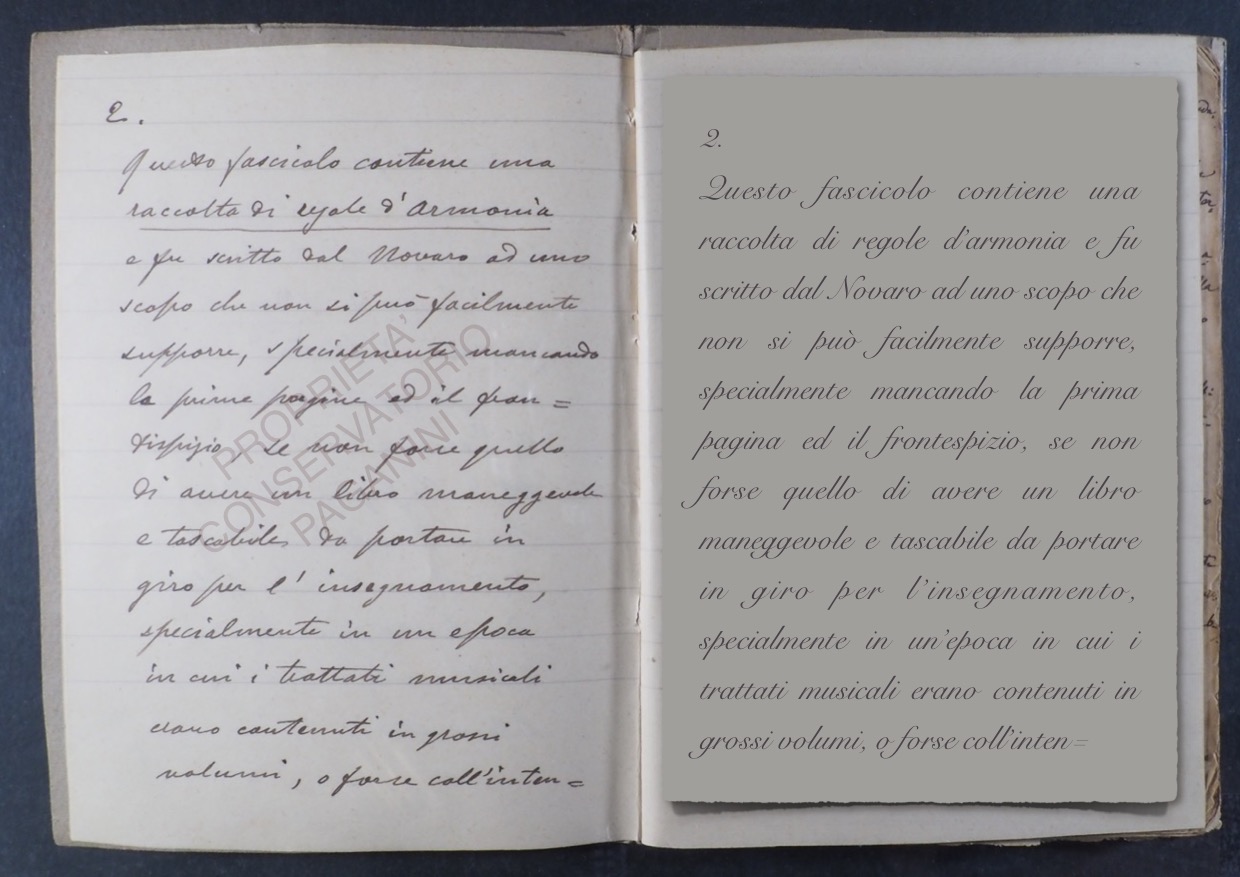 2.
Questo fascicolo contiene una
raccolta di regole d'Armonia
e fu scritto dal Novaro ad uno
scopo che non si può facilmente
supporre, specialmente mancando
la prima pagina ed il fron=
tispizio, se non forse quello
di avere un libro maneggevole
e tascabile, da portare in
giro per l'insegnamento,
specialmente in un epoca
in cui i trattati musicali
erano contenuti in grossi
volumi, o forse coll'inten=
PROPRIETA'
CONSERVATORIO
PAGANINI
2.
Questo fascicolo contiene una
raccolta di regole d'armonia e fu
scritto dal Novaro ad uno scopo che
non si può facilmente supporre,
specialmente mancando la prima
pagina ed il frontespizio, se non
forse quello di avere un libro
maneggevole e tascabile da portare
in giro per l'insegnamento,
specialmente in un'epoca in cui i
trattati musicali erano contenuti in
grossi volumi, o forse coll'inten=